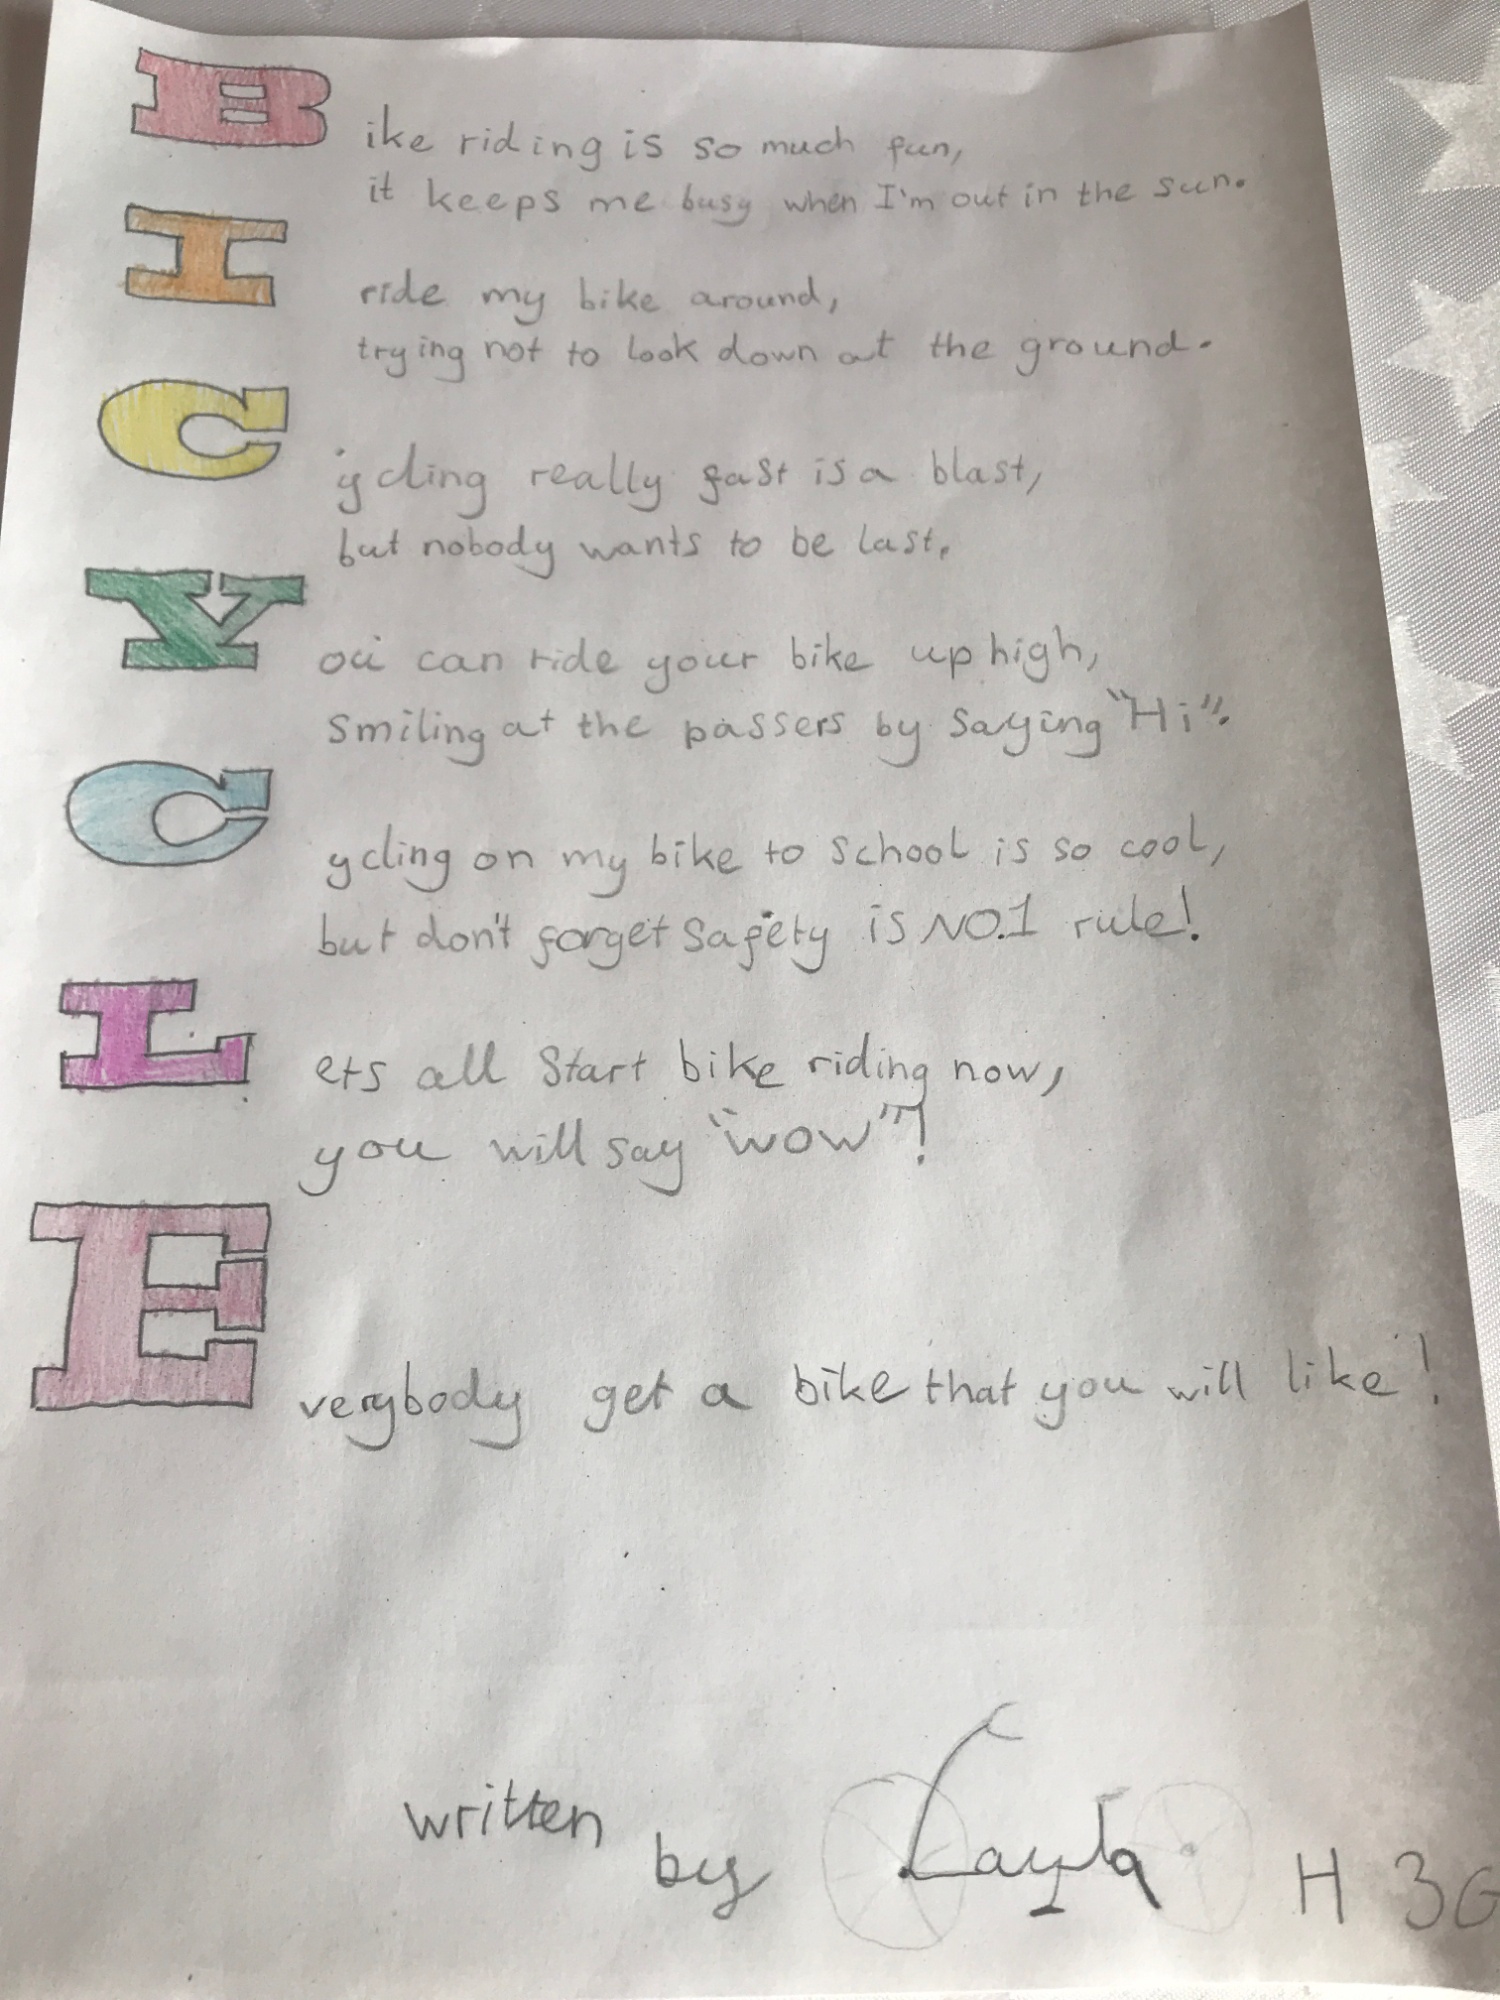 Bike riding is so much fun,
it keeps me busy when I'm out in the sun.
I ride my bike around,
trying not to look down at the ground.
Cycling really fast is a blast,
but nobody wants to be last.
You can ride your bike up high,
Smiling at the passers by saying "Hi".
Cycling on my bike to School is so cool,
but don't forget Safety is NO.1 rule!
Lets all Start bike riding now,
you will say "WOW"!
Everybody get a bike that you will like!
written
by Layla H 3G